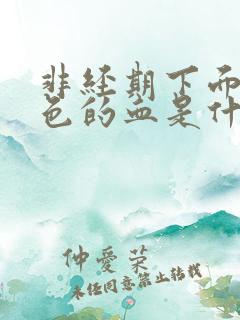 非经期下而
色的血是什
仲爱荣
未经同意禁止转载